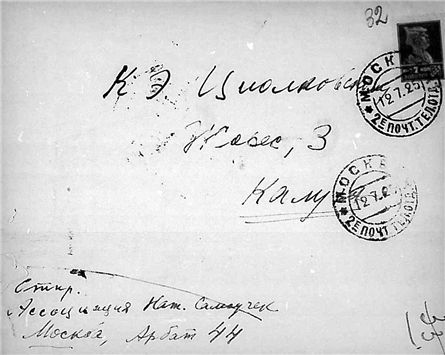 32
К Э Циолковск
Жорес, 3
Калу
МОСК
12.7.25
2Е ПОЧТ.ТЕЛ.ОТД.
МОСКВ
12.7.2
2Е ПОЧТ.ТЕЛ.ОТД
Отпр.
Ассоциация Нат. Самоучек
Москва, Арбат 44